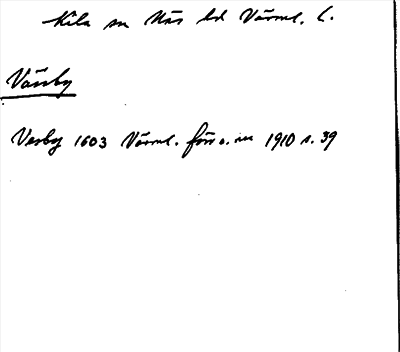 Kila sn Näs hd Värml. l.
Väsby
Vesby 1603 Värml. förr o. nu 1910 s. 39